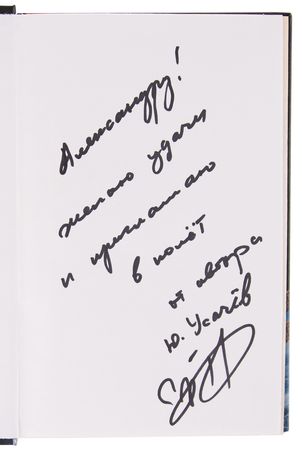 Александру!
желаю удачи
и приглашаю
в полёт
от автора
Ю. Усачёв